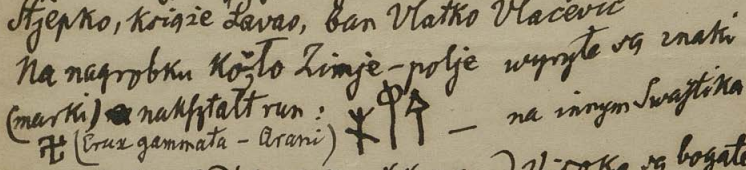 Stjepko, książe Pavao, ban Vlatko Vlaćević
Na nagrobku Kožło Zimje-polje wyryte są znaki
(marki) nakształt run : — na innym Swastika
卐 (Crux gammata – Arani)
są bogate